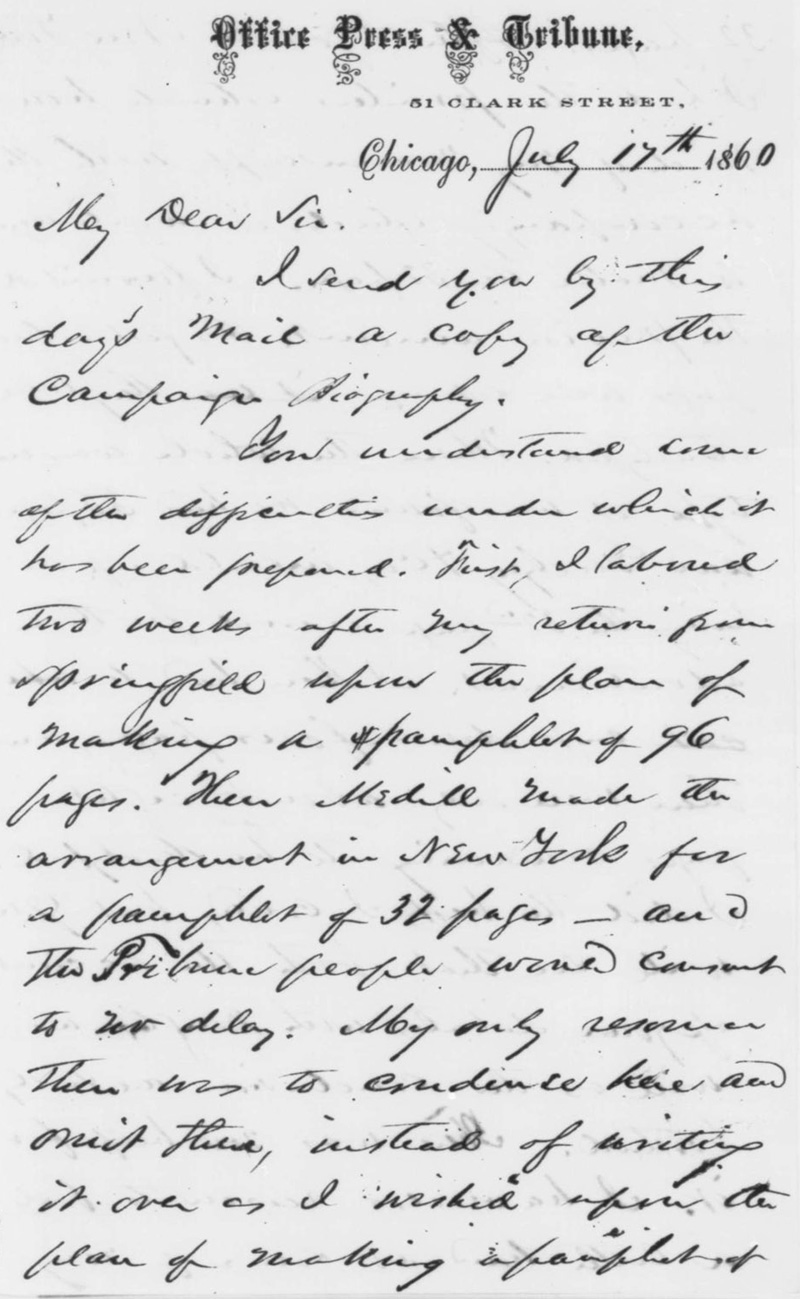 Office Press & Tribune,
51 CLARK STREET,
Chicago, July 17th 1860
My Dear Sir.
I send you by this
day's Mail a copy of the
Campaign Biography.
You understand some
of the difficulties under which it
has been prepared. First, I labored
two weeks after my return from
Springfield upon the plan of
making a pamphlet of 96
pages. Then Medill made the
arrangement in New York for
a pamphlet of 32 pages — and
the Tribune people would consent
to no delay. My only resource
then was to condense here and
omit there, instead of writing
it over as I wished upon the
plan of making a pamphlet of